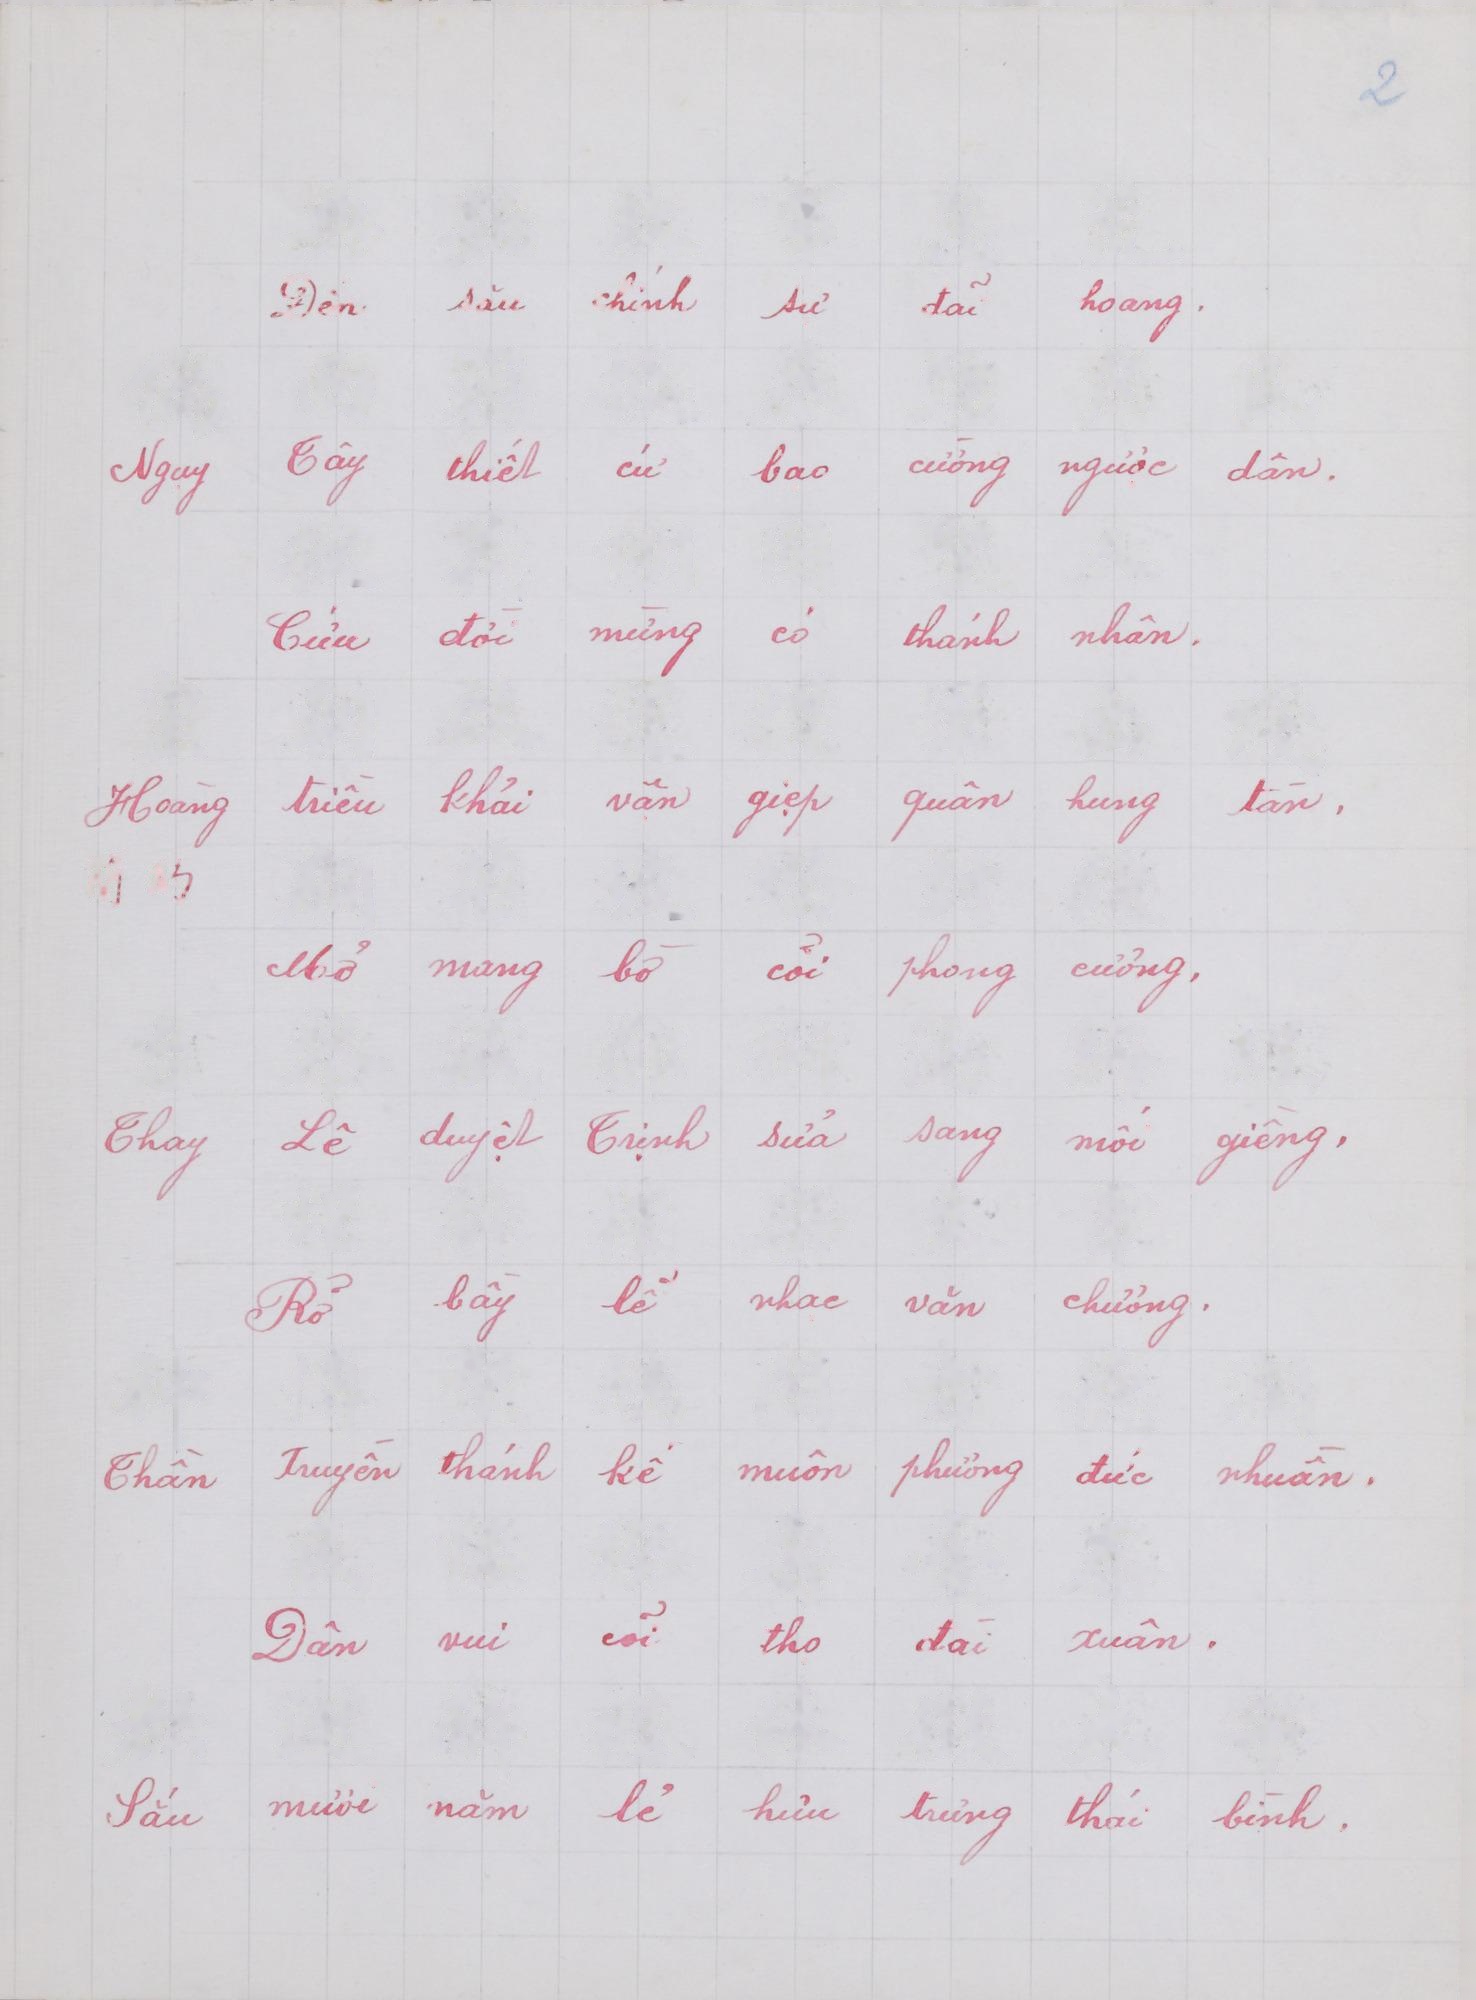 2
Đến său chính sự đaĩ hoang.
Ngụy Tây thiết cứ bạo cường ngược dân.
Cứu đời mừng có thánh nhân.
Hoàng triều khải vận giẹp quân hung tàn.
Mở mang bờ cỏi phong cường,
Thay Lê duyệt Trịnh sửa sang mối giềng,
Rỏ bầy lể nhạc văn chương.
Thần Truyền thánh kế muôn phương đức nhuần.
Dân vui cỏĩ thọ đài xuân.
Sáu mươi năm lẻ hưu trưng thái bình.